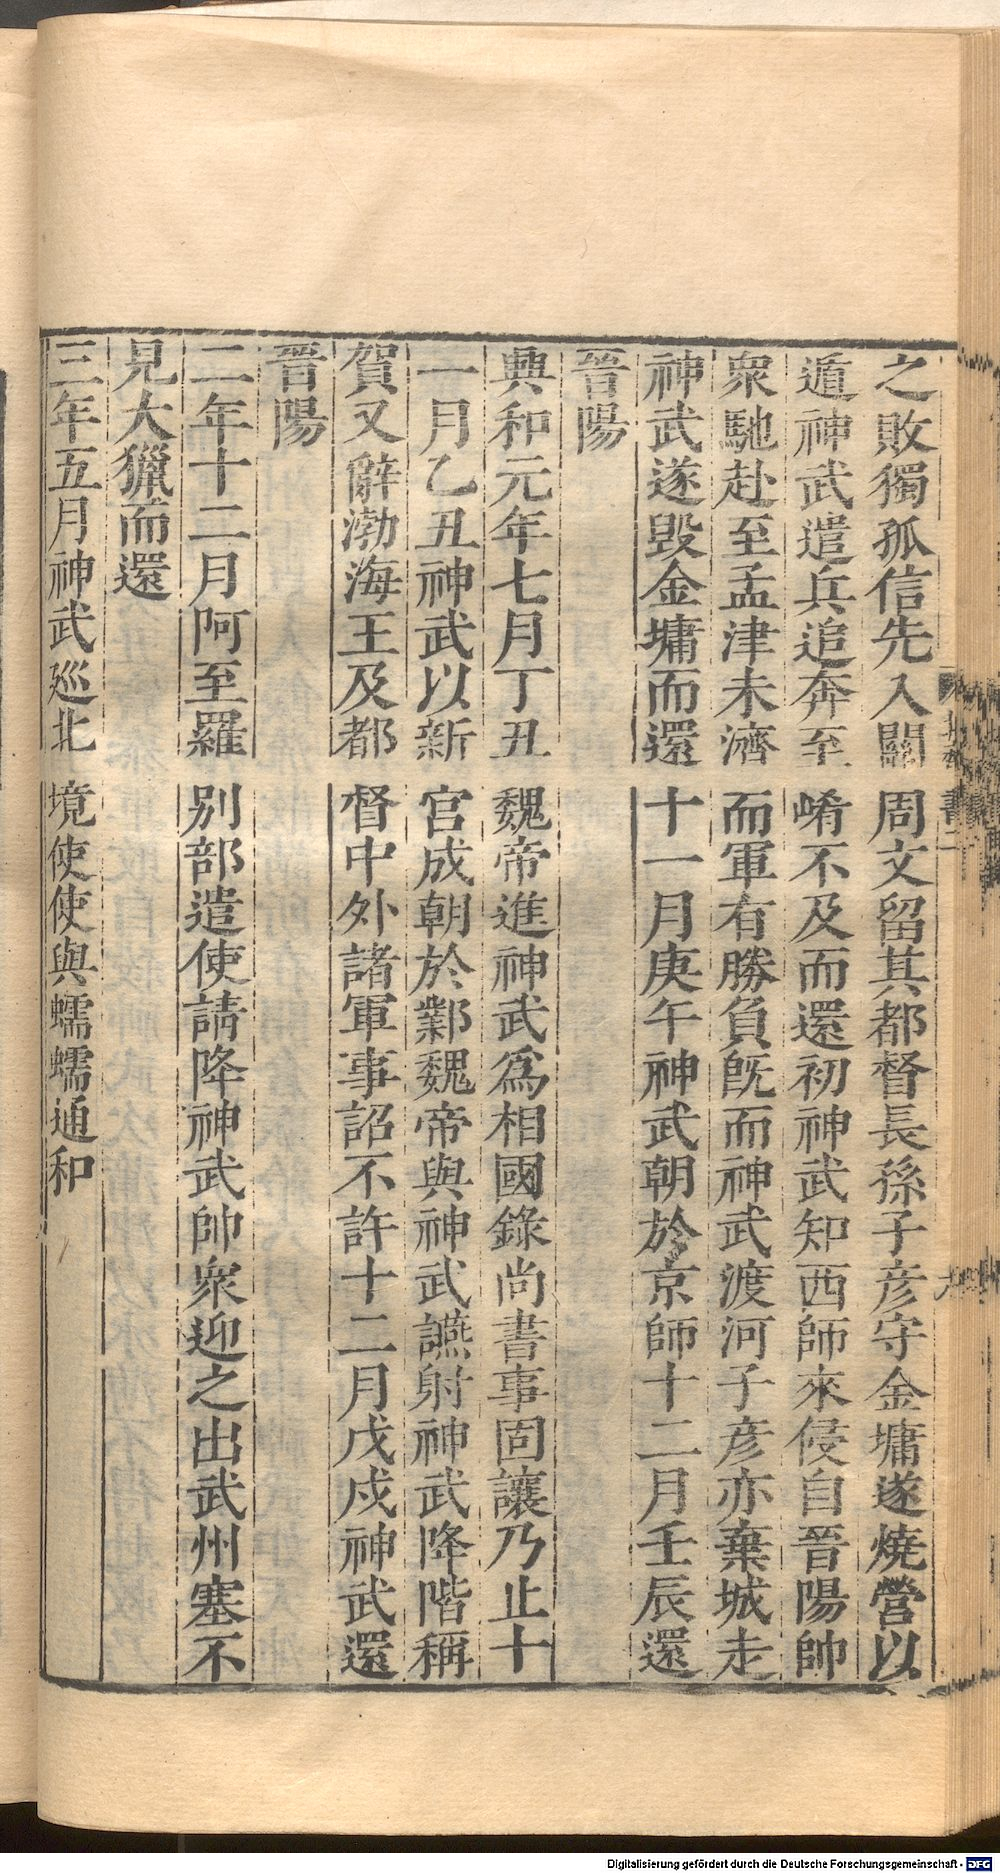 之敗獨孤信先入關周文留其都督長孫子彦守金墉遂燒營以
遁神武遣兵追奔至崤不及而還初神武知西師來侵自晉陽帥
衆馳赴至孟津未濟而軍有勝負旣而神武渡河子彦亦棄城走
神武遂毁金墉而還十一月庚午神武朝於京師十二月壬辰還
晉陽
興和元年七月丁丑魏帝進神武爲相國錄尚書事固讓乃止十
一月乙丑神武以新宫成朝於鄴魏帝與神武讌射神武降階稱
賀又辭渤海王及都督中外諸軍事詔不許十二月戊戌神武還
晉陽
二年十二月阿至羅别部遣使請降神武帥衆迎之出武州塞不
見大獵而還
三年五月神武廵北境使使與蠕蠕通和
Digitalisierung gefördert durch die Deutsche Forschungsgemeinschaft - DFG